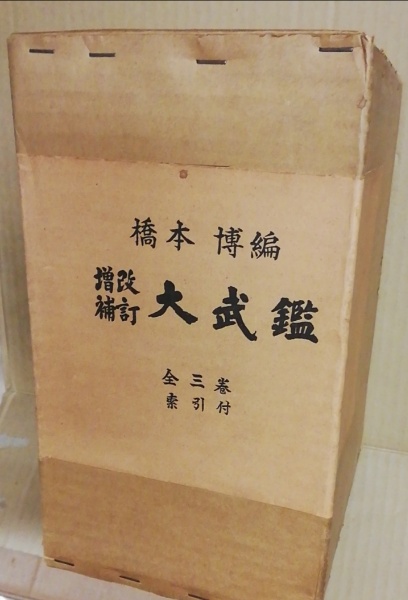 橋本 博編
改訂増補 大武鑑
全三巻
索引付